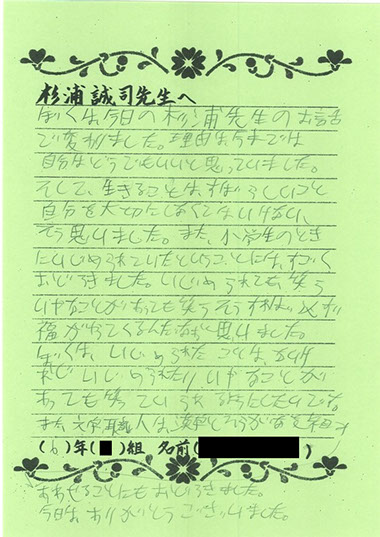 杉浦誠司先生へ
ぼくは今日の杉浦先生のお話
で変わりました。理由は今までは
自分はどうでもいいと思っていました。
そして、生きることはすばらしいこと
自分を大切にしなくてはいけない、
そう思いました。また、小学生のとき
にいじめられていたということには、すごく
おどろきました。いじめられても笑う
いやなことがあっても笑うそうすれば必ず
福がやってくるんだなあと思いました。
ぼくは、いじめられたことは、ないけ
れど いじめられたり いやなことが
あっても笑っていられるようにしたいです。
また 文字職人は、漢字と
(6)年( )組 名前( )
あわせることにもおどろきました。
今日は、ありがとうございました。